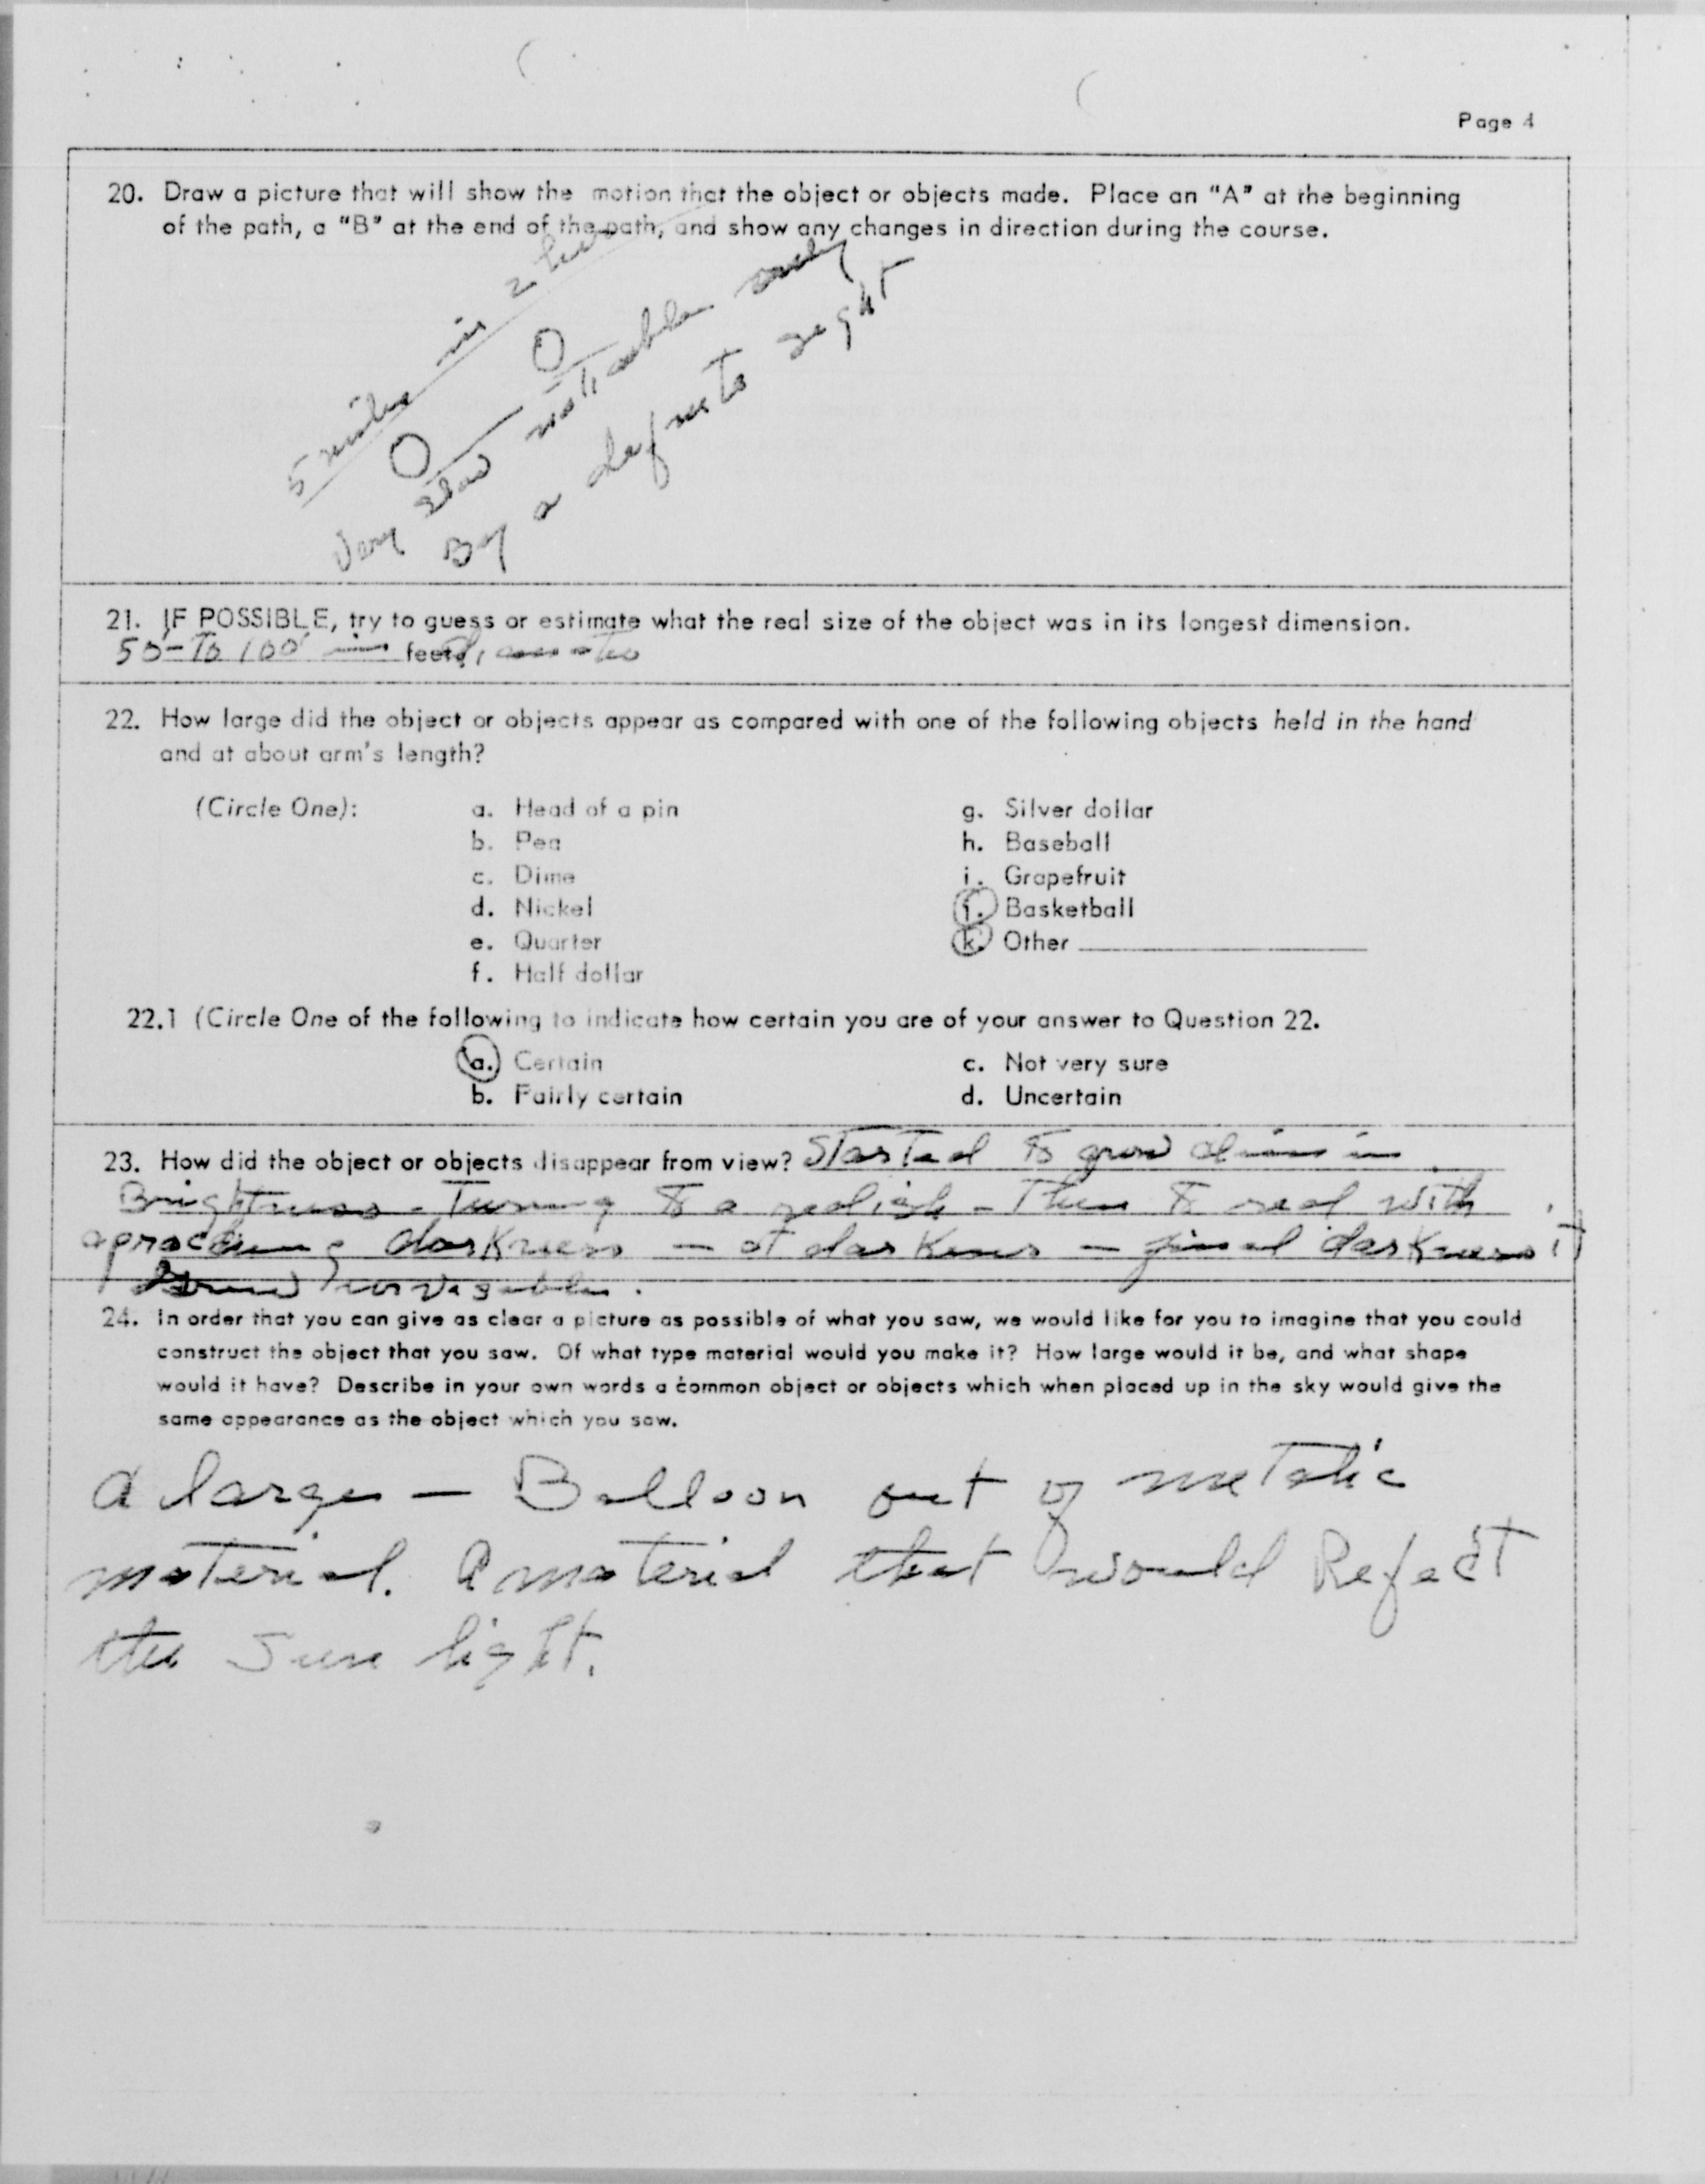 Page 4
20. Draw a picture that will show the motion that the object or objects made. Place an "A" at the beginning
of the path, a "B" at the end of the path, and show any changes in direction during the course.
5 miles in 2 hrs
Very slow notiable only
By a defnite sight
21. IF POSSIBLE, try to guess or estimate what the real size of the object was in its longest dimension.
50'-To 100' in feet
22. How large did the object or objects appear as compared with one of the following objects held in the hand
and at about arm's length?
(Circle One): a. Head of a pin g. Silver dollar
b. Pea h. Baseball
c. Dime i. Grapefruit
d. Nickel j. Basketball
e. Quarter k. Other
f. Half dollar
22.1 (Circle One of the following to indicate how certain you are of your answer to Question 22.
a. Certain c. Not very sure
b. Fairly certain d. Uncertain
23. How did the object or objects disappear from view? Started to grow dim in
Brightness - Turning to a redish - Then to red with
aproching darkness - at darkness - final darkness it
unvisable.
24. In order that you can give as clear a picture as possible of what you saw, we would like for you to imagine that you could
construct the object that you saw. Of what type material would you make it? How large would it be, and what shape
would it have? Describe in your own words a common object or objects which when placed up in the sky would give the
same appearance as the object which you saw.
A large - Balloon out of metalic
material. A material that would Reflect
the Sun light.